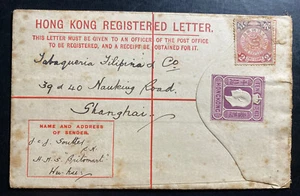 HONG KONG REGISTERED LETTER.
THIS LETTER MUST BE GIVEN TO AN OFFICER OF THE POST OFFICE
TO BE REGISTERED, AND A RECEIPT BE OBTAINED FOR IT.
Tabaqueria Filipina & Co
39 & 40 Nanking Road,
Shanghai
NAME AND ADDRESS
OF SENDER.
H.M.S.